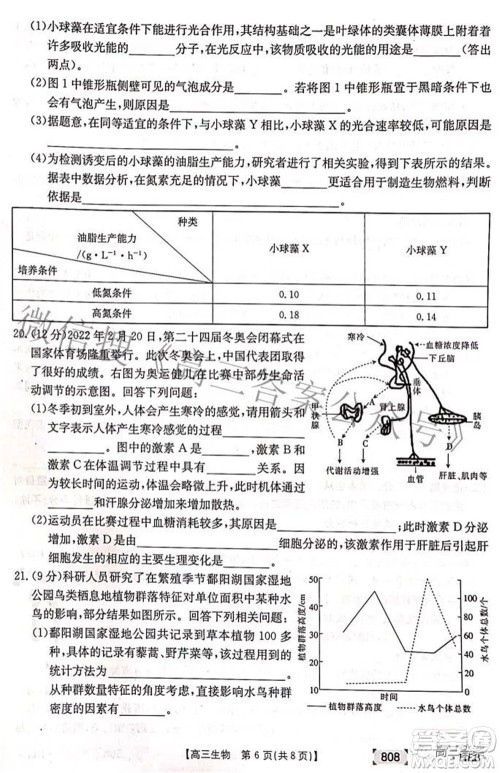 (1)小球藻在适宜条件下能进行光合作用，其结构基础之一是叶绿体的类囊体薄膜上分布有
许多吸收光能的________分子，在光反应中，该物质吸收光能的作用是________（答出
两点）。
(2)图1中锥形瓶侧壁可见的气泡成分是________。若将图1中锥形瓶置于黑暗条件下也
会产生气泡，则原因是________。
(3)据题意，在同等适宜的条件下，与小球藻Y相比，小球藻X的光合速率较低，可能原因是
________。
(4)为检测诱变后的小球藻的油脂生产能力，研究者进行了相关实验，实验结果如下表所示。
据表中数据分析，在氮素充足的情况下，小球藻________更适用于制造生物燃料，原因是
________。
种类
油脂生产能力
/(g·L⁻¹·h⁻¹)
培养条件
小球藻X
小球藻Y
低氮条件
0.10
0.11
高氮条件
0.10
0.14
20.(12分)2022年2月20日，第二十四届冬奥会闭幕式在
国家体育场隆重举行。此次冬奥会，中国代表团取得
了很好的成绩。右图为奥运健儿在比赛中部分生命活
动调节的示意图。回答下列问题：
(1)冬季初到室外，人体会产生寒冷感觉，请用箭头和
文字表示人体产生寒冷感觉的过程：________
________。图中的激素A为________，激
素C为________。激素C增加使代谢活动增
强，产热增加，体温会略微上升，此时机体通过________
和汗腺分泌增加来增加散热。
寒冷
血糖浓度降低
下丘脑
垂体
甲状腺
肾上腺
胰岛
A
B
C
D
代谢活动增强
血管
肝脏、肌肉等
(2)运动员在比赛过程中血糖消耗较多，其原因是________；此时激素D分泌
增加，激素D是由________细胞分泌的，该激素作用于肝脏后引起肝
细胞内发生的主要生理变化是________。
21.(9分)科研人员研究了在繁殖季节鄱阳湖国家湿地
公园鸟类栖息地植物群落特征对单位面积中某种水
鸟的影响，部分结果如图。回答下列问题：
(1)鄱阳湖国家湿地公园共记录到草本植物100多
种，具体的记录有藜蒿、野芹菜等，植物群落高度
的动态变化直接影响水鸟的________和________。
从种群数量特征的角度分析，影响水鸟种群密
度的因素有________。
植物群落高度/cm
50
40
30
20
10
水鸟个体总数/个
100
80
60
40
20
0
时间
植物群落高度
水鸟个体总数
【高三生物 第6页(共8页)】
808
微信搜《高三答案公众号》